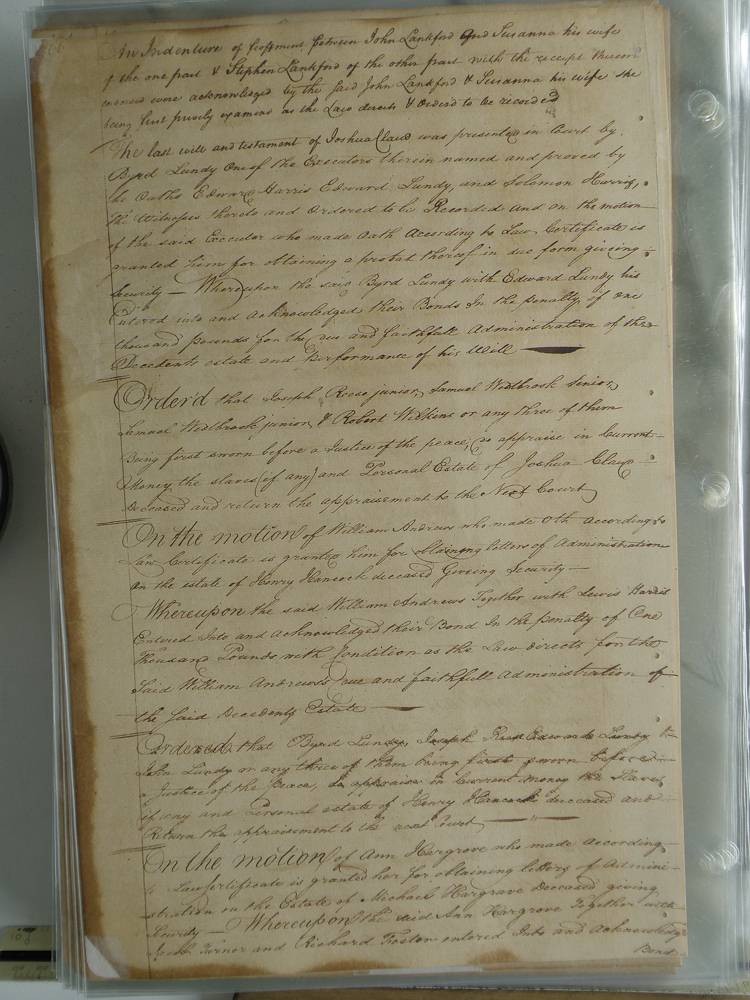 An Indenture of Feoffment between John Lankford and Susanna his wife
of the one part & Stephen Lankford of the other part with the receipt thereon
were acknowledged by the said John Lankford & Susanna his wife she
being first privily examined as the Law directs & Orderd to be recorded
The last will and testament of Joshua Claud was presented in Court by
Byrd Lundy One of the Executors therein named and proved by
the Oaths Edward Harris Edward Lundy, and Solomon Harris,
the Witnesses thereto and Ordered to be Recorded and on the motion
of the said Executor who made Oath According to Law Certificate is
granted him for obtaining a probat thereof in due form giveing
Security — Whereupon the said Byrd Lundy with Edward Lundy his
Entered into and acknowledged their Bonds In the penalty of one
thousand pounds for the due and faithfull Administration of the
Decedents estate and Performance of his Will —
Order'd that Joseph Reese junior, Samuel Westbrook Senior,
Samuel Westbrook junior, & Robert Wilkins or any three of them
Being first sworn before a Justice of the peace, do appraise in Current
Money, the slaves (if any) and Personal Estate of Joshua Claud
Deceased and return the appraisement to the Next Court
On the motion of William Andrews who made Oth according to
Law Certificate is granted him for obtaining letters of Administration
on the estate of Henry Hancock deceased Giveing Security —
Whereupon the said William Andrews Together with Lewis
Entered Into and acknowledged their Bond In the penalty of One
Thousand Pounds with Condition as the Law directs for the
Said William Andrews's true and faithfull administration of
the said Decedents Estate —
Ordered that Byrd Lundy, Joseph Edwards Lundy &
John Lundy or any three of them being first sworn before
a Justice of the peace, do appraise in Current money the Slaves
if any and Personal estate of Henry Hancock deceased and
Return the appraisement to the next Court
On the motion of Ann Hargrove who made according
to Law Certificate is granted her for obtaining letters of Admini-
stration on the Estate of Michael Hargrave Deceased giving
Security — Whereupon the said Ann Hargrove Together with
Turner and Richard entered Into and Acknowledgd
Bond